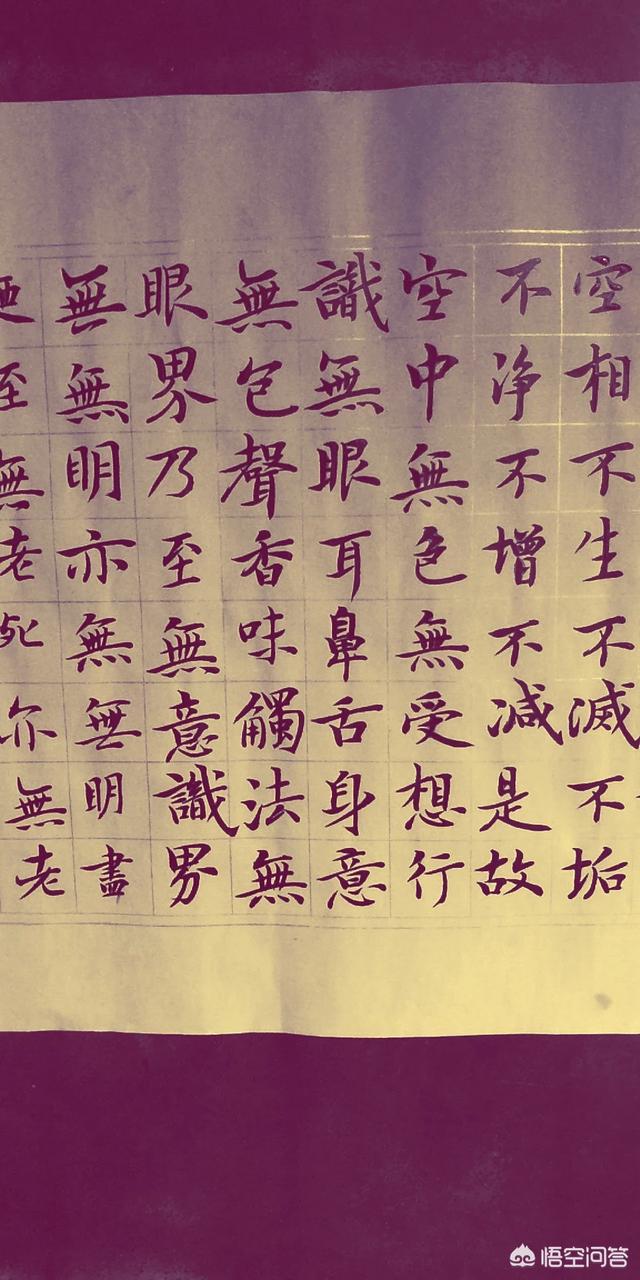 空相不生不滅不垢
不净不增不減是故
空中無色無受想行
識無眼耳鼻舌身意
無色聲香味觸法無
眼界乃至無意識界
無無明亦無無明盡
至無老死亦無老
悟空问答